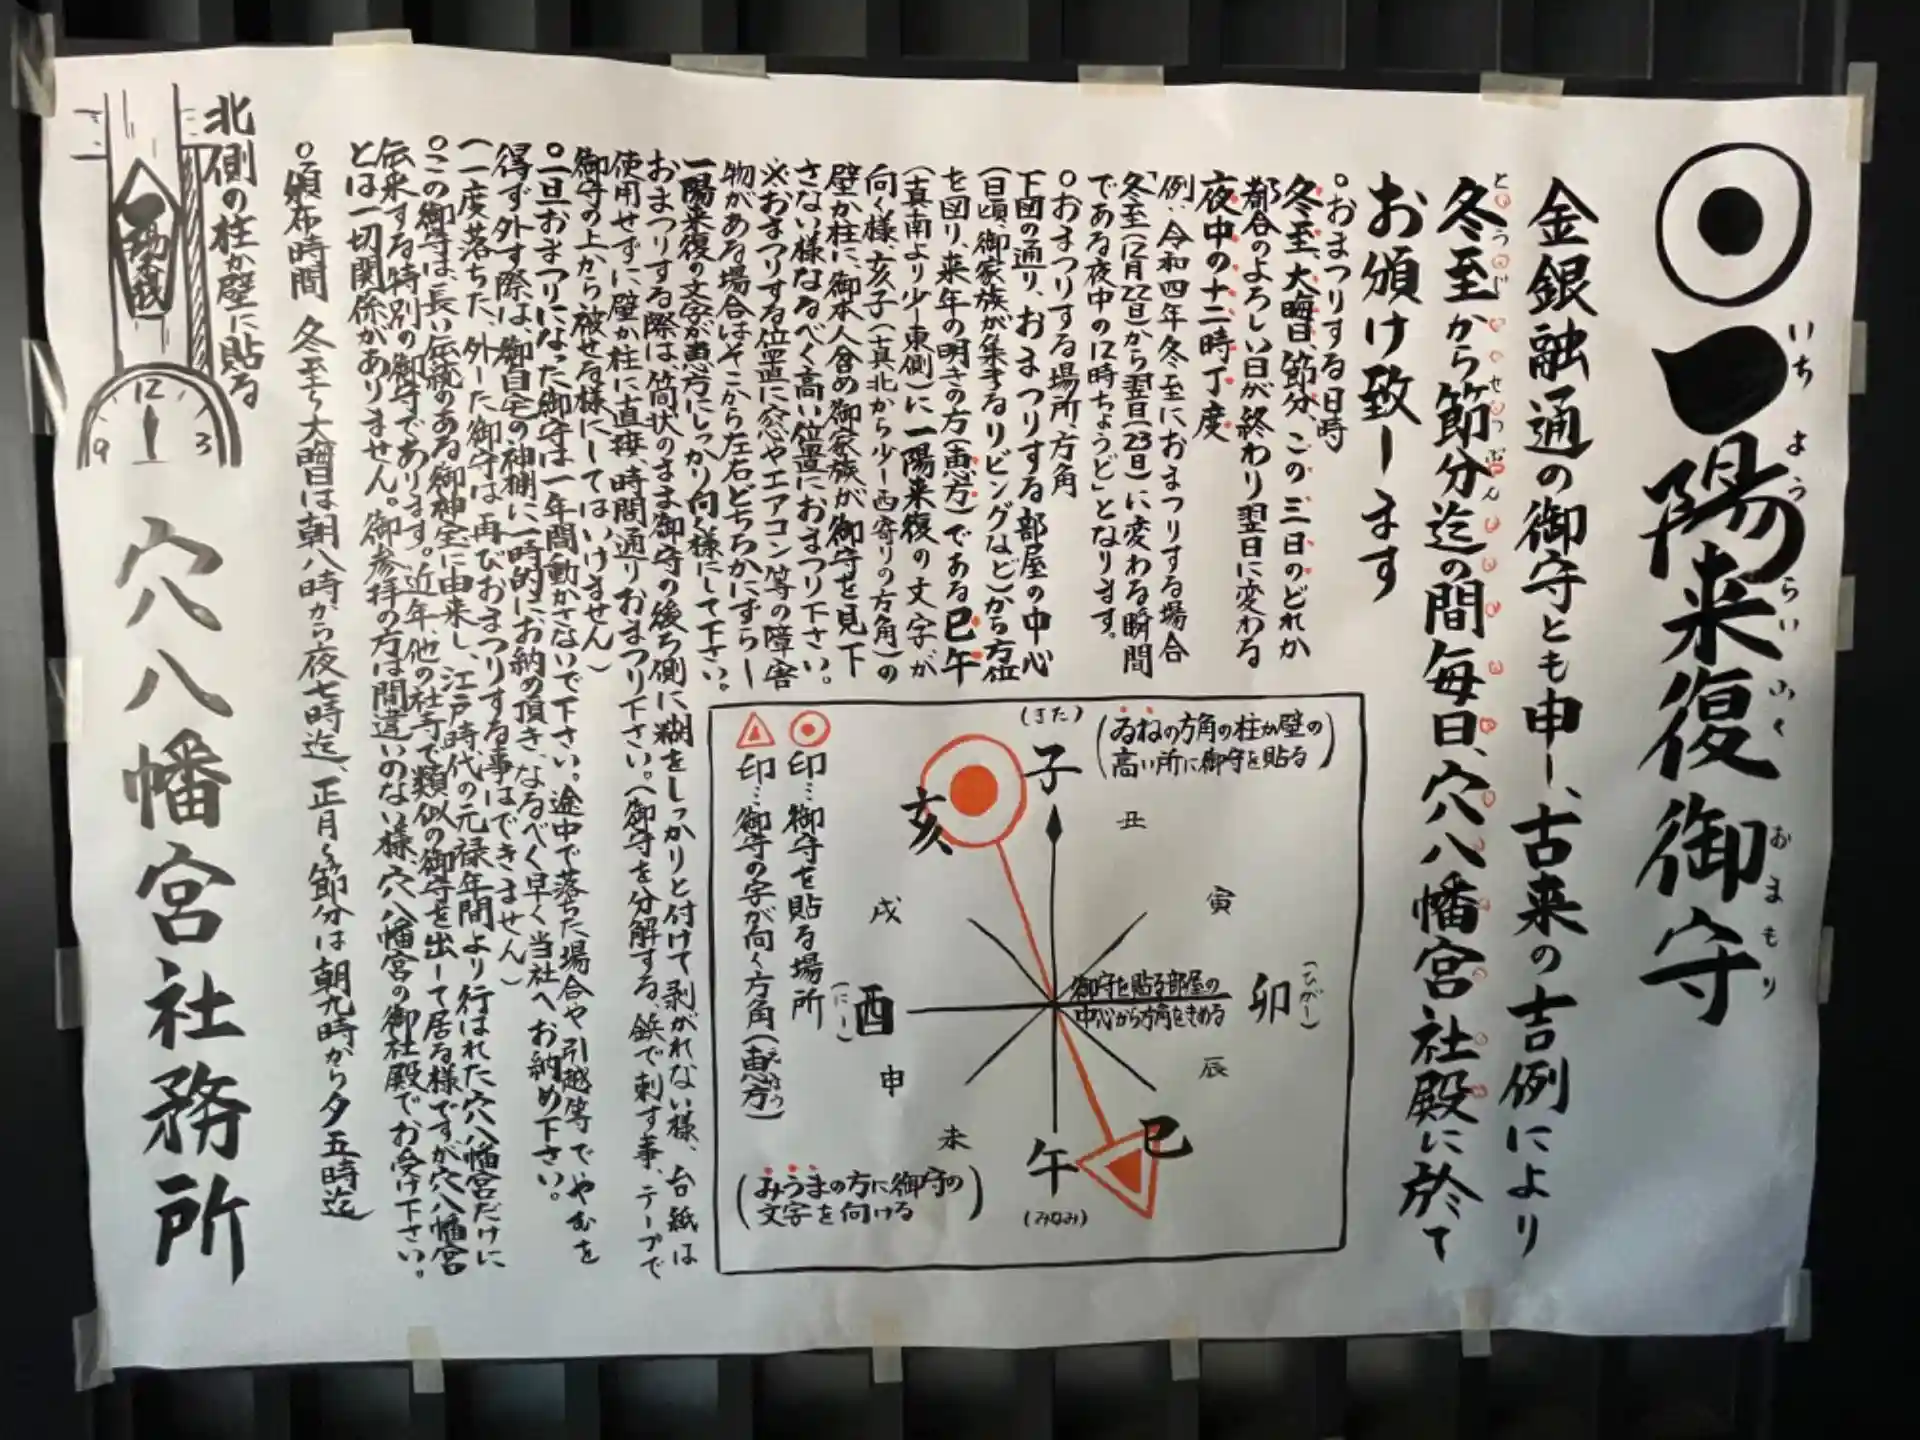 一陽来復御守
いちようらいふくおまもり
金銀融通の御守とも申し、古来の吉例により
冬至から節分迄の間毎日、穴八幡宮社殿に於て
とうじからせつぶん
お頒け致します
○おまつりする日時
冬至、大晦日、節分、この三日のどれか
都合のよろしい日が終わり翌日に変わる
夜中の十二時丁度
例:令和四年冬至におまつりする場合
「冬至(12月22日)から翌日(23日)に変わる瞬間
である夜中の12時ちょうど」となります。
○おまつりする場所、方角
下図の通り、おまつりする部屋の中心
(日頃、御家族が集するリビングなど)から方位
を図り、来年の明きの方(恵方)である巳午
(真南より少し東側)に一陽来復の文字が
向く様、亥子(真北から少し西寄りの方角)の
壁か柱に、御本人含め御家族が御守を見下
さない様なるべく高い位置におまつり下さい。
※おまつりする位置に窓やエアコン等の障害
物がある場合はそこから左右どちらかにずらし
一陽来復の文字が恵方にしっかり向く様にして下さい。
おまつりする際は筒状のまま御守の後ろ側に糊をしっかりと付けて剥がれない様、台紙は
使用せずに壁か柱に直接、時間通りおまつり下さい。(御守を分解する、鋲で刺す事、テープで
御守の上から被せる様にしてはいけません)
○一旦おまつりになった御守は一年間動かさないで下さい。途中で落ちた場合や引越等でやむを
得ず外す際は、御自宅の神棚に一時的にお納め頂き、なるべく早く当社へお納め下さい。
(一度落ちた、外した御守は再びおまつりする事はできません)
○この御守は、長い伝統のある御神宝に由来し、江戸時代の元禄年間より行はれた穴八幡宮だけに
伝来する特別の御守であります。近年、他の社寺で類似の御守を出して居る様ですが穴八幡宮
とは一切関係がありません。御参拝の方は間違いのない様、穴八幡宮の御社殿でお受け下さい。
○頒布時間 冬至〜大晦日は朝八時から夜七時迄、正月〜節分は朝九時から夕五時迄
(きた)
子
(ゐねの方角の柱か壁の
高い所に御守を貼る)
丑
寅
卯
(ひがし)
辰
巳
午
(みなみ)
未
申
酉
(にし)
戌
亥
御守を貼る部屋の
中心から方角をきめる
印…御守を貼る場所
印…御守の字が向く方角(恵方)
えほう
(みうまの方に御守の
文字を向ける)
北側の柱か壁に貼る
一陽来復
12
9
3
穴八幡宮社務所